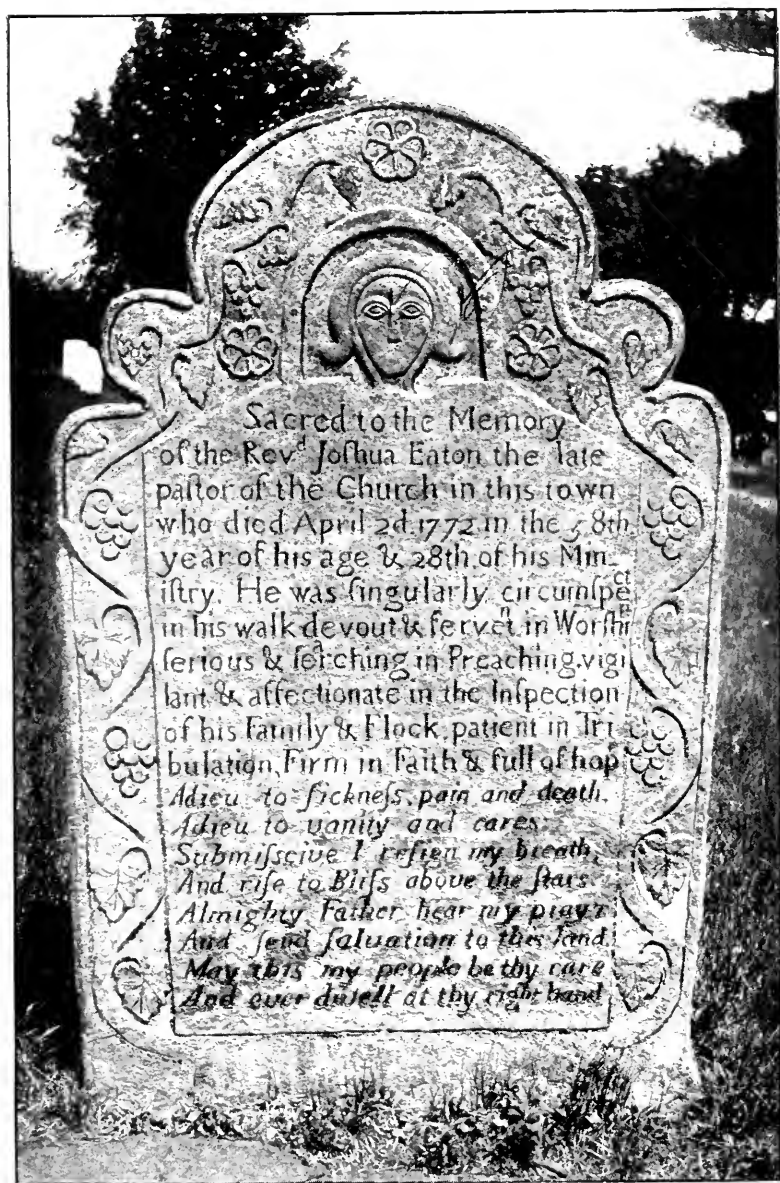 Sacred to the Memory
of the Revd Joſhua Eaton the late
paſtor of the Church in this town
who died April 2d. 1772 in the 58th
year of his age & 28th of his Min_
iſtry. He was ſingularly circumſpect
in his walk devout & fervent in Worſhip
ſerious & ſerching in Preaching, vigi
lant & affectionate in the Inſpection
of his Family & Flock, patient in Tri
bulation, Firm in Faith & full of hop
Adieu to ſickneſs, pain and death,
Adieu to vanity and cares
Submiſscive I reſign my breath,
And riſe to Bliſs above the ſtars.
Almighty Father hear my pray'r
And ſend ſalvation to this land.
May this my people be thy care
And ever dwell at thy right hand